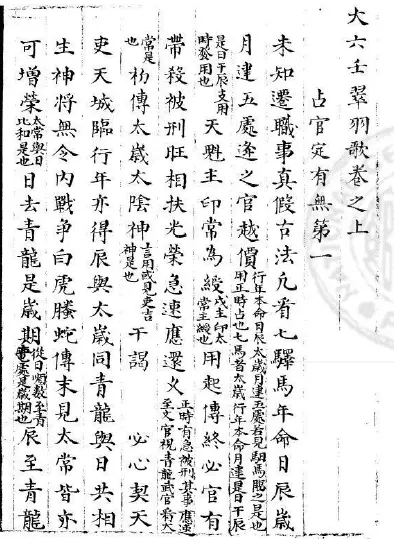 大六壬翠羽歌卷之上
占官定有無第一
未知遷職事真假古法先看七驛馬年命日辰歲
月建五處逢之官越價行年本命日辰太歲月建五處若見馹馬臨之是也用正時占也七馬者太歲行年本命月建是日干辰
是日干辰支用時發用也天魁主印常為綬戌主印太常主綬也用起傳終必官有
帶殺被刑旺相扶光榮急速應還火正時有急被刑其事應至文官視青龍武官看太
常是也初傳太歲太陰神言用或見吏吉神是也干謁必心契天
吏天城臨行年亦得辰與太歲同青龍與日共相
生神將無令內戰爭白虎螣蛇傳末見太常皆亦
可增榮太常與日比和是也日去青龍是歲期從日順數至青處是歲期也辰至青龍